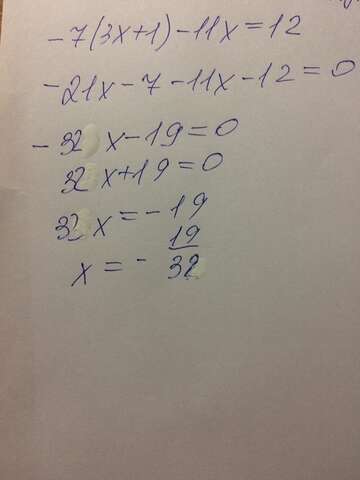 -7(3x+1)-11x=12
-21x-7-11x-12=0
-32x-19=0
32x+19=0
32x=-19
x=-19/32